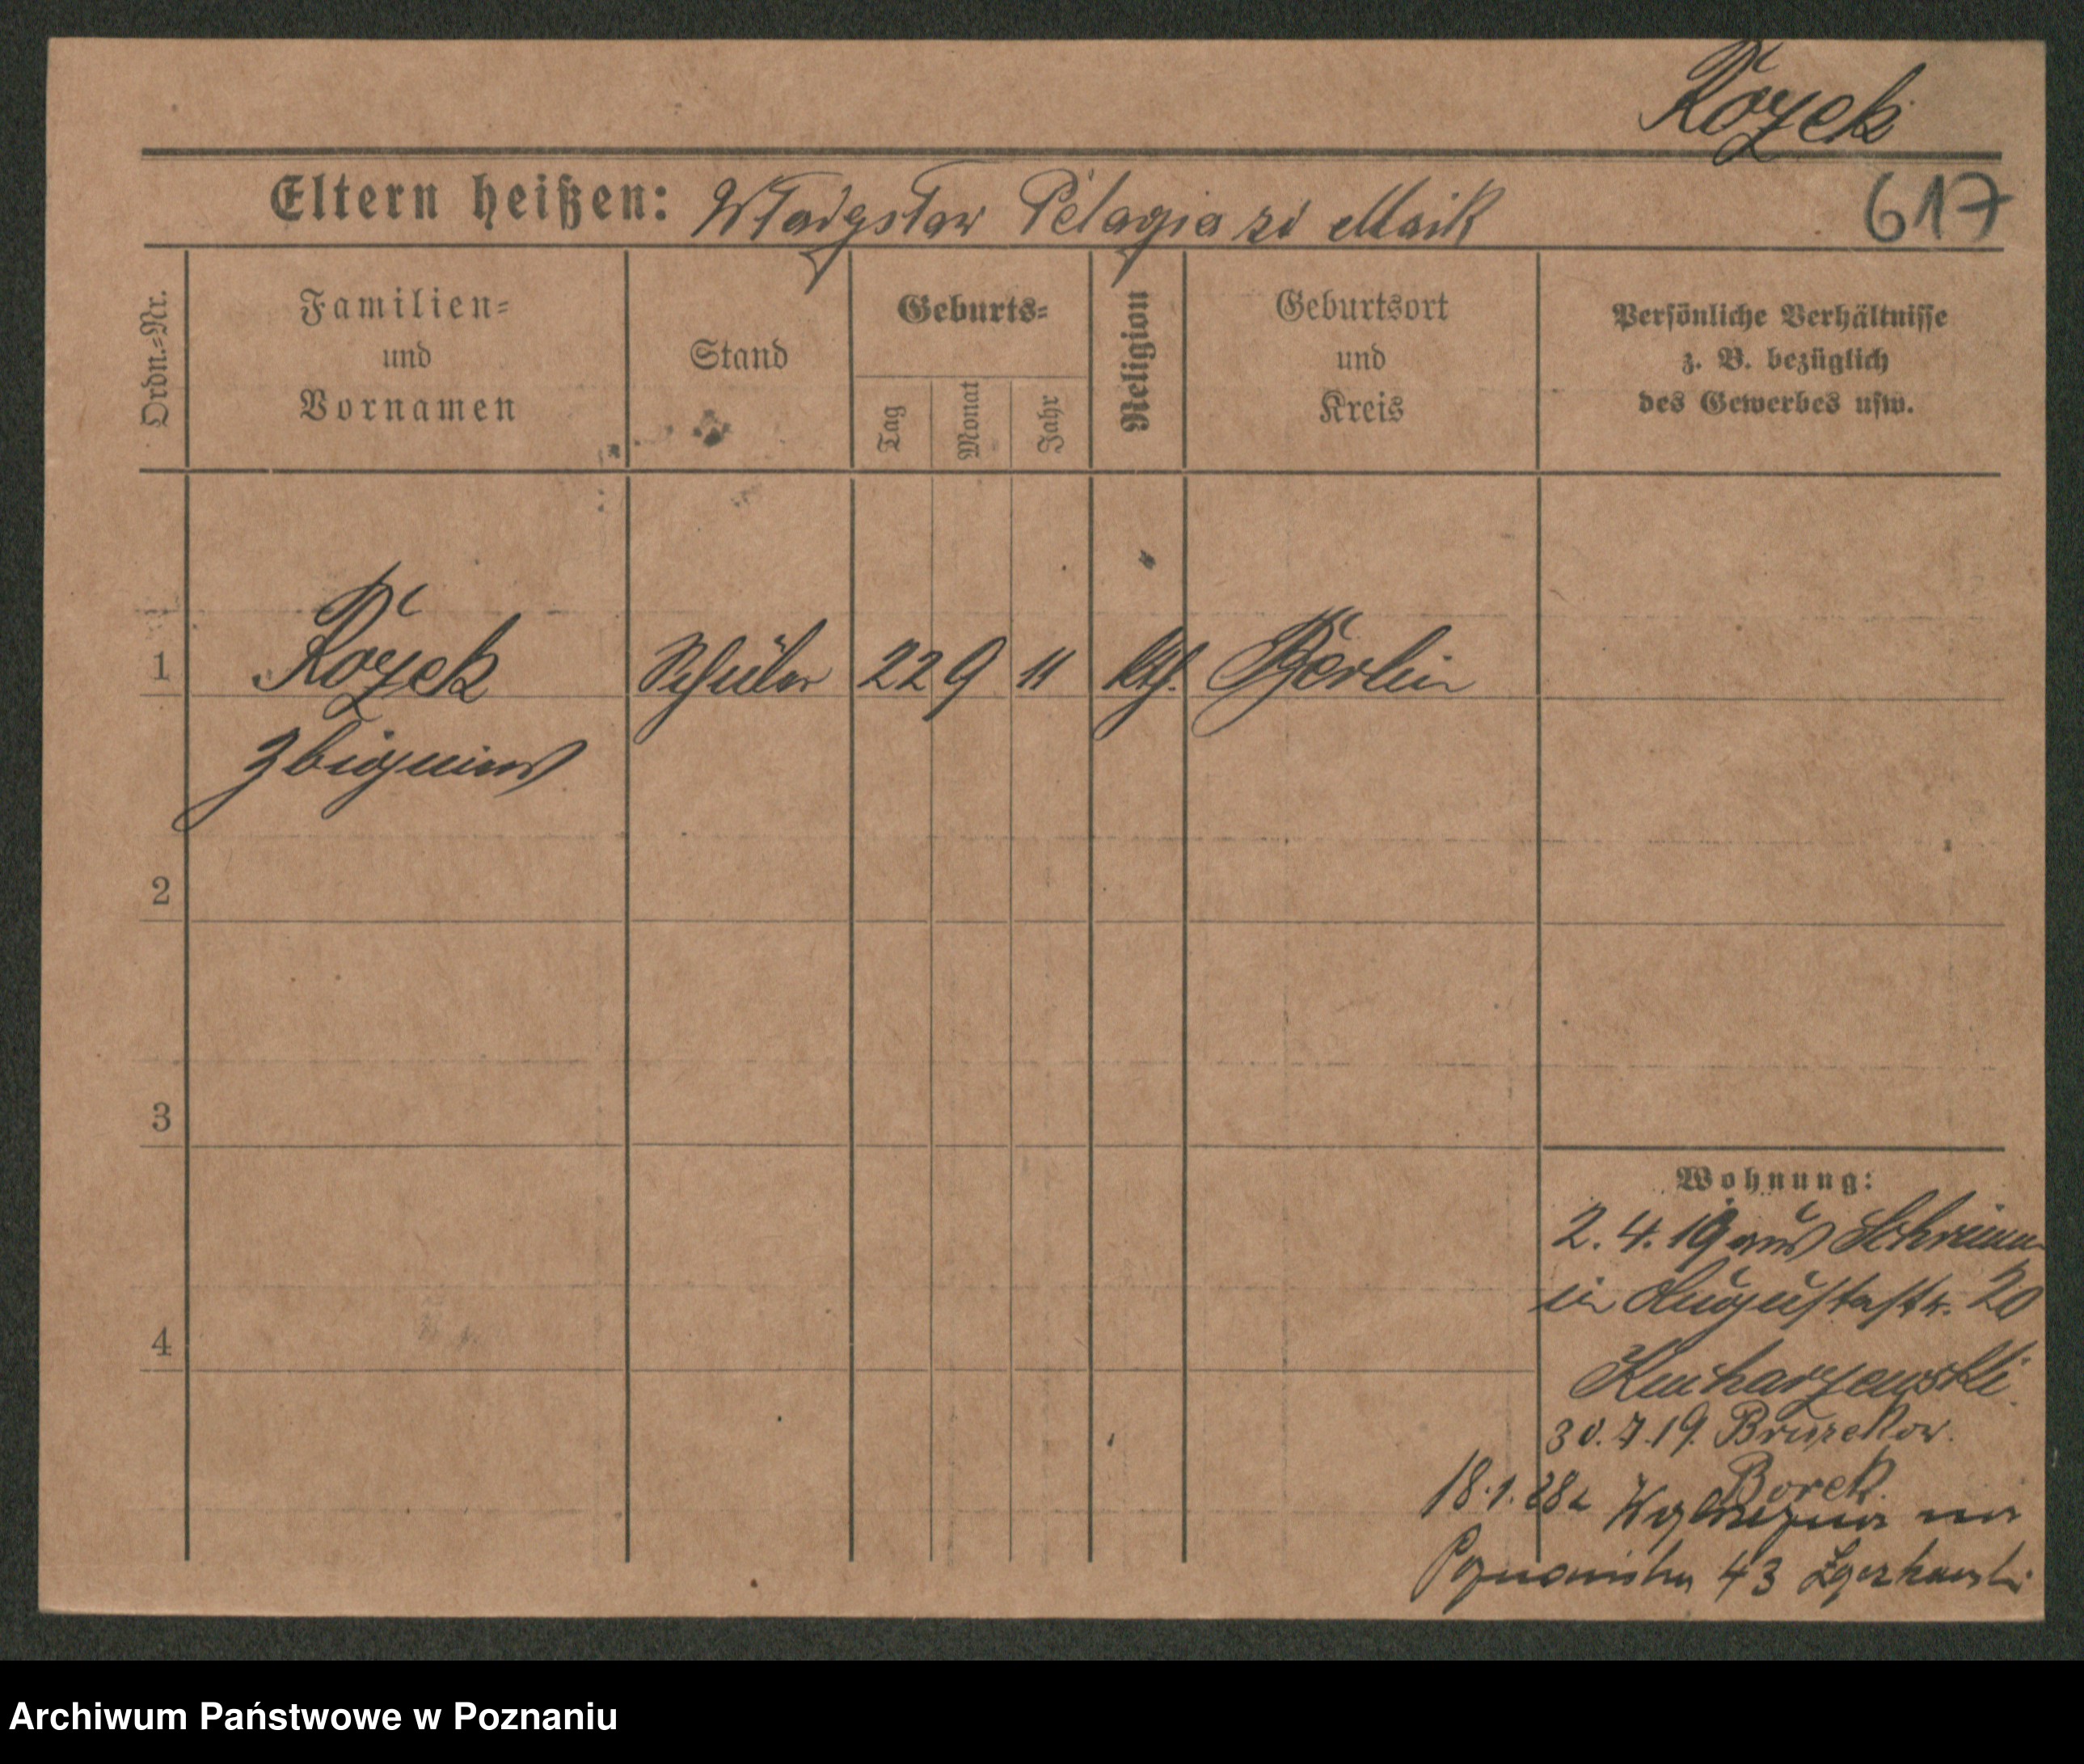 Rożek
Eltern heißen: Władysław Pelagia zd Maik
617
Ordn.-Nr.
Familien-
und
Vornamen
Stand
Geburts-
Tag
Monat
Jahr
Religion
Geburtsort
und
Kreis
Persönliche Verhältnisse
z. B. bezüglich
des Gewerbes usw.
1 Rożek Schüler 22 9 11 kth. Berlin
Zbigniew
2
3
Wohnung:
2. 4. 19 aus Schrimm
in Augustastr. 20
4
Kucharzewski
30. 7. 19. Bruczkow.
Borek.
18.1.28
43
Archiwum Państwowe w Poznaniu